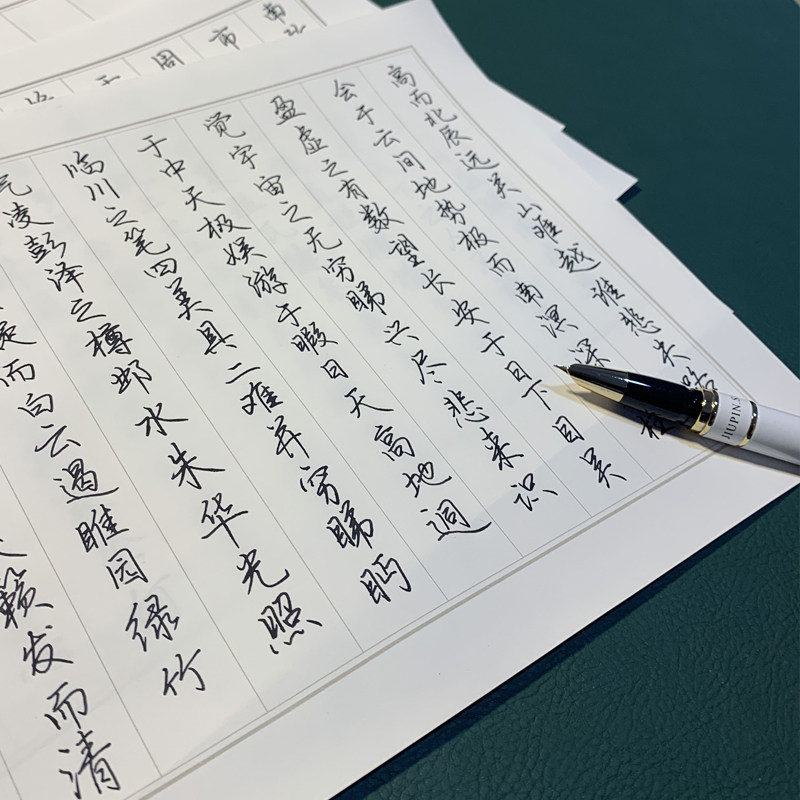 高而北辰远关山难越谁悲失路
会于云间地势极而南溟深柱
盈虚之有数望长安于日下目吴
觉宇宙之无穷睇兴尽悲来识
于中天极娱游于暇日天高地迥
临川之笔四美具二难并穷睇眄
气凌彭泽之樽邺水朱华光照
而白云遏睢园绿竹
籁发而清
南
市
周
JIUPIN.S